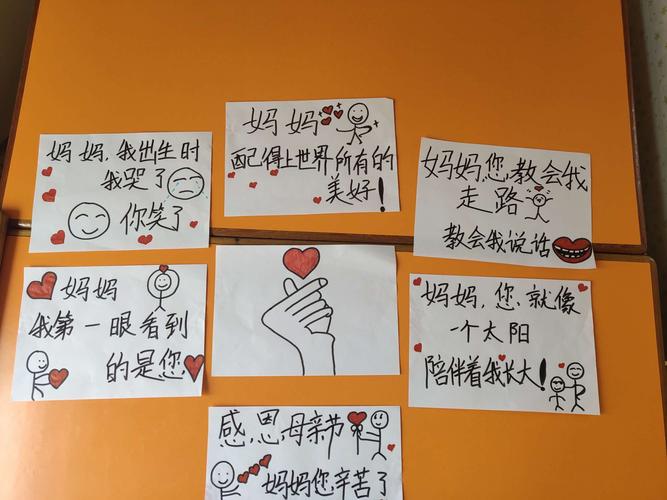 妈妈,我出生时
我哭了
你笑了
妈妈
配得上世界所有的
美好!
妈妈,您,教会我
走路
教会我说话
妈妈
我第一眼看到
的是您
妈妈,您,就像
一个太阳
陪伴着我长大!
感,恩,母亲节
妈妈您,辛苦了